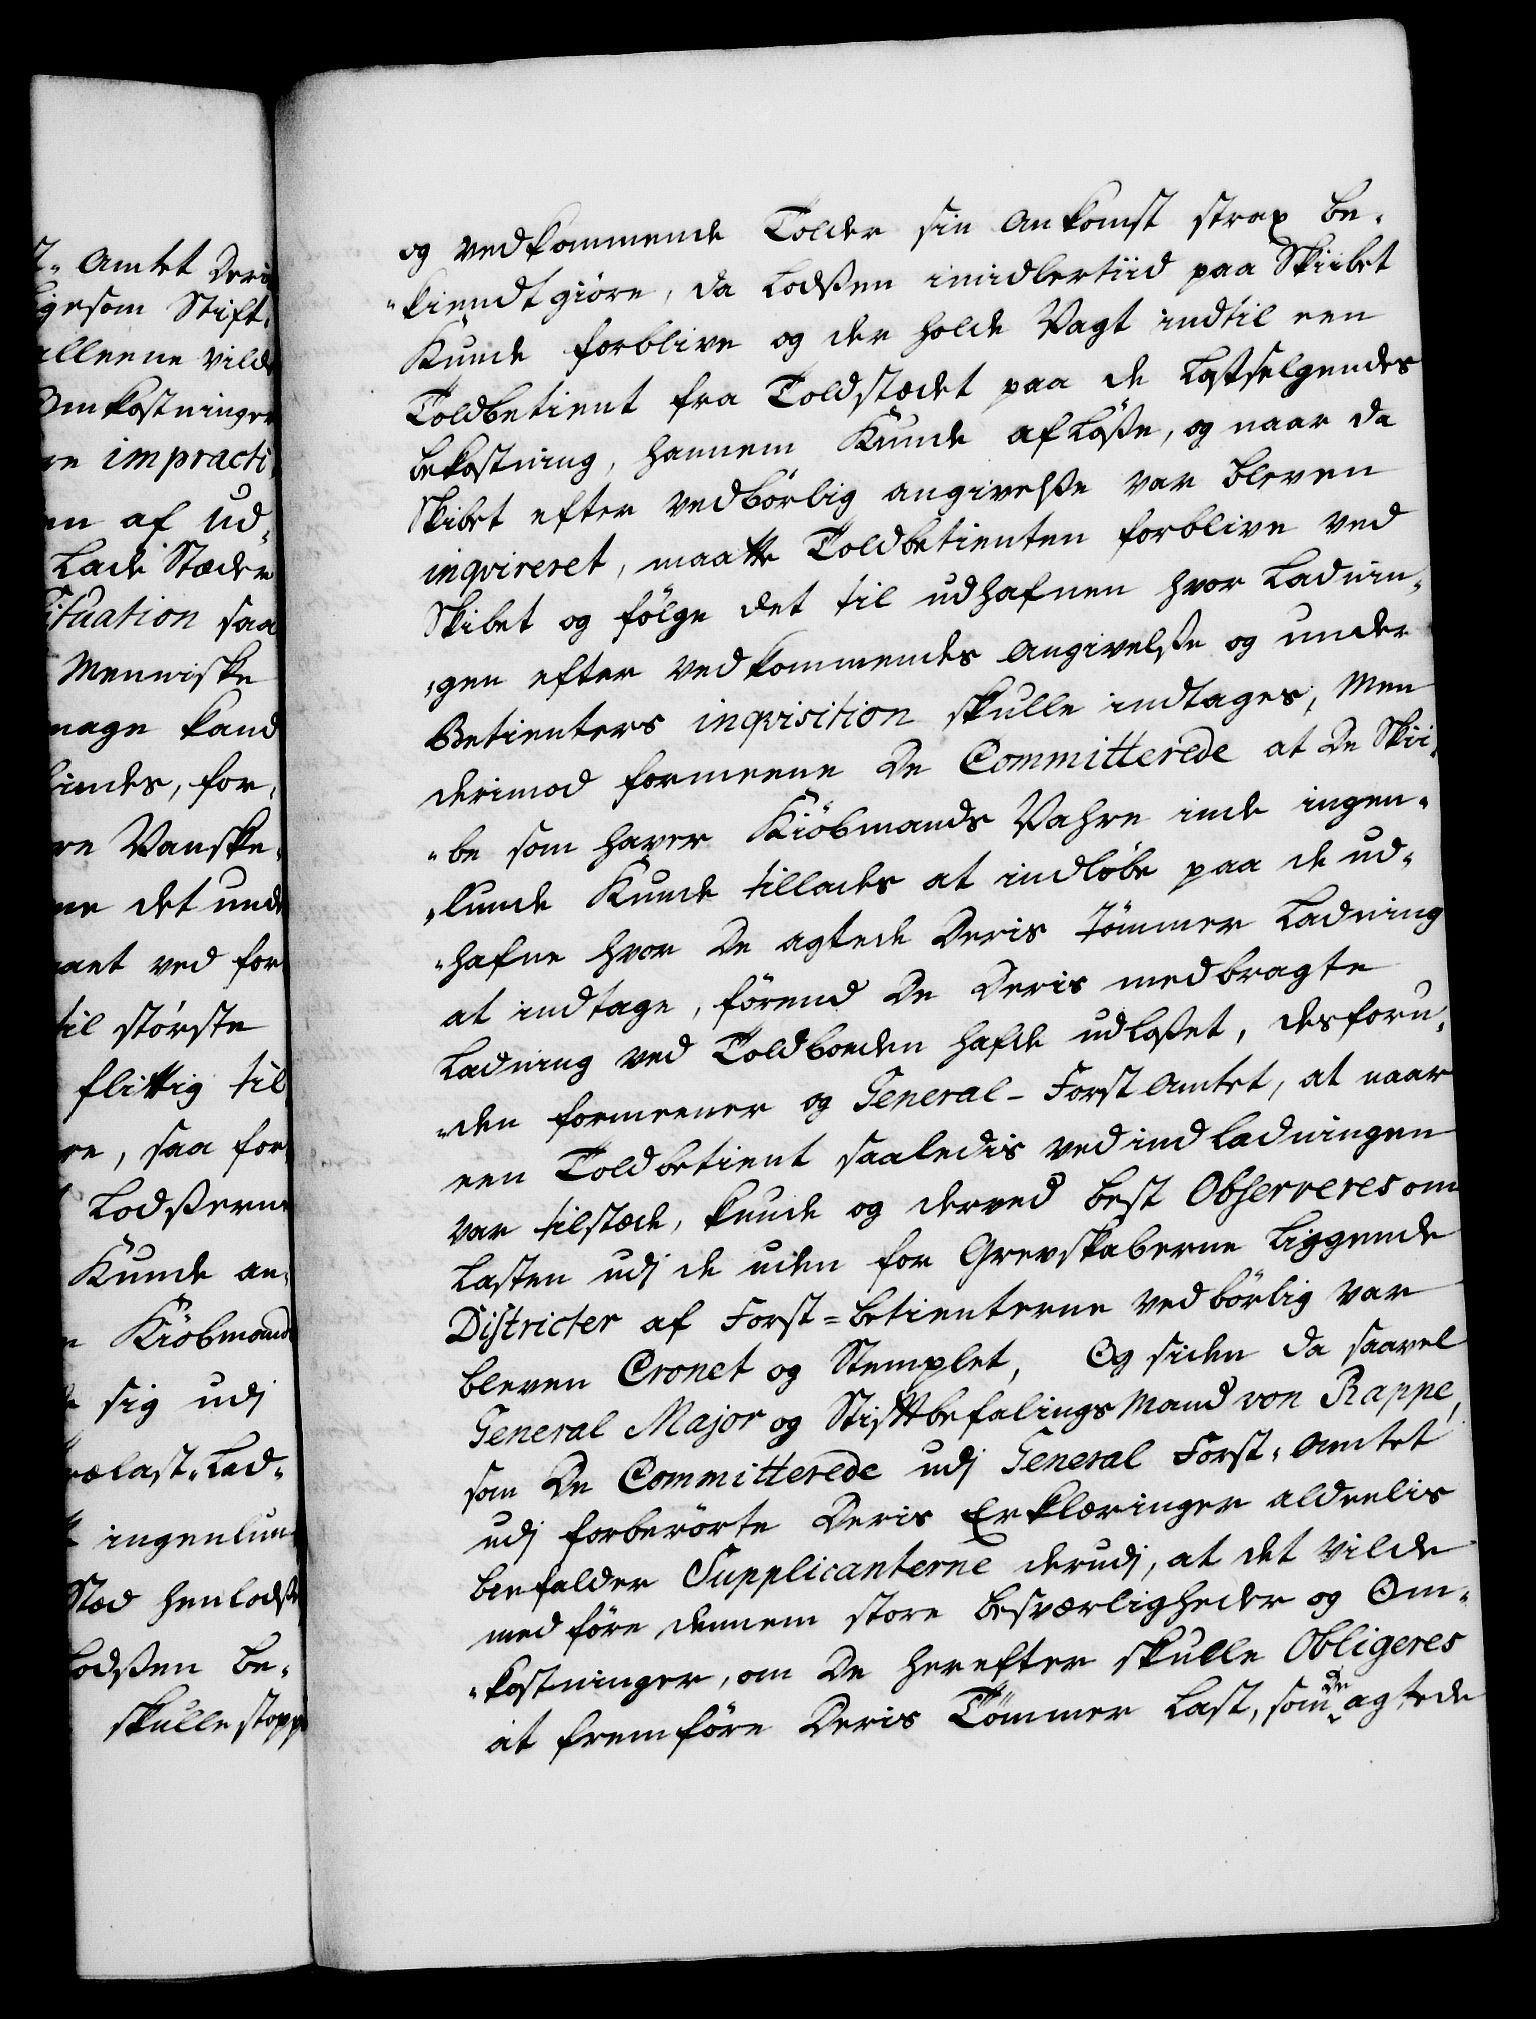 t, Amtet Deri
gesom Stift,
alleene vild
Omkostninger
re impracti
en af ud,
Lade Stæder
Situation saa
Menniske
mage kand
indes, for,
re Vanske,
ne det und
aaet ved for
til største
flittig til
re, saa for
Lodsserne
Kunde an,
Kiöbmand
sig udj
ælast, Lad,
ingenlun
Stæd henlodse
Lodssen be,
skulle stopp
og vedkommende Tolder sin ankomst strax be,
"kiendtgiöre, da Lodssen imidlertiid paa Skiibet
Kunde forblive og der holde Vagt indtil een
Toldbetient fra Toldstædet paa de Lastselgendes
bekostning, hannem Kunde aflösse, og naar da
Skibet efter vedbörlig angivelsse var bleven
inqvireret, maatte Toldbetienten forblive ved
Skibet og fölge det til udhafnen hvor Ladnin,
,gen efter vedkommendes angivelsse og under
Betienters inqvisition skulle indtages, Men
derimod formeene De Committerede at De Skii,
"be som haver Kiöbmands Vahre inde ingen,
"lunde Kunde tillades at indlöbe paa de ud,
"hafne hvor De agtede Deris Tömmer Ladning
at indtage, förend De Deris medbragte
Ladning ved Toldboeden hafde udlosset, desforu,
"den formeener og General-Forst Amtet, at naar
een Toldbetient saaledis ved indladningen
var tilstæde, kunde og derved best Observeres om
Lasten udj de uden for Grevskaberne Liggende
Districter af Forst=betienterne vedbörlig var
bleven Cronet og Stemplet, Og siden da saavel
General Major og Stiftbefalings Mand von Rappe,
som De Committerede udj General Forst, Amtet
udj forberörte Deris Erklæringer aldeelis
beefalder Supplicanterne derudj, at det vilde
medföre dennem store besværligheder og Om,
"kostninger, om De herefter skulle Obligeres
at fremföre Deris Tömmer Last, som de agtede